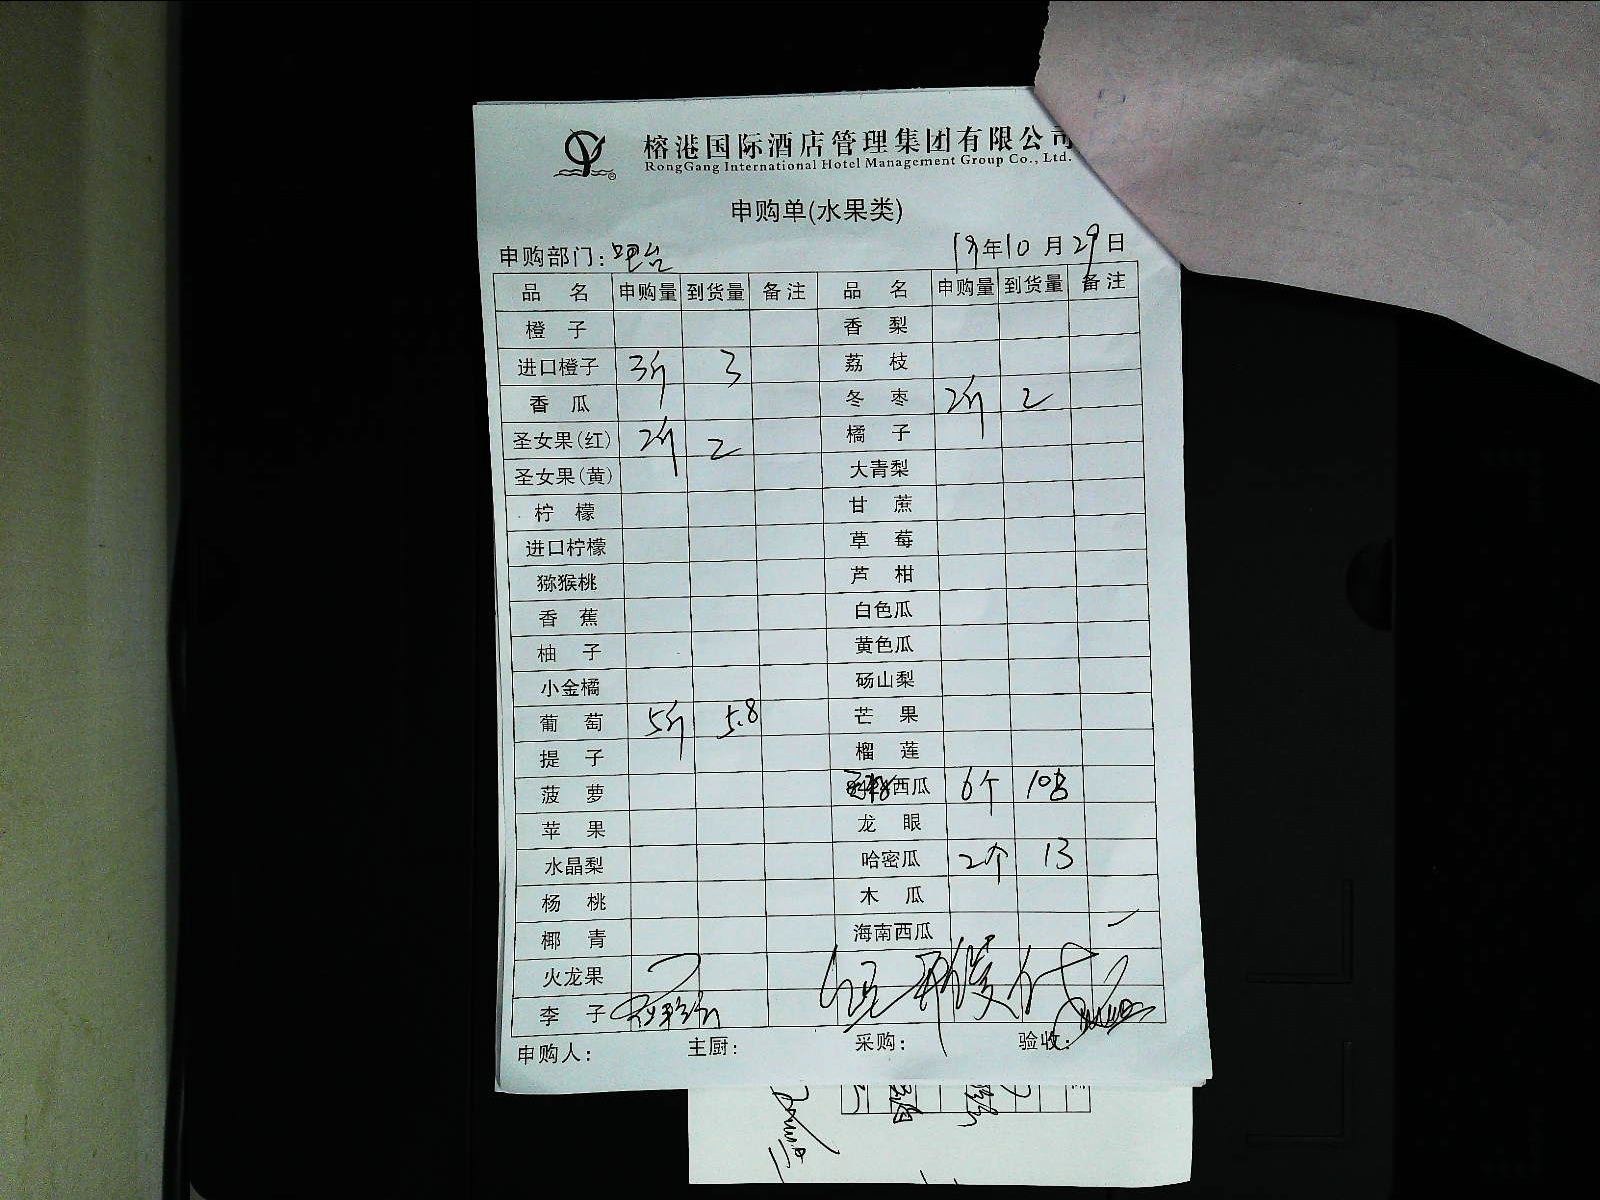 榕港国际酒店管理集团有限公司
RongGang International Hotel Management Group Co., Ltd.
申购单(水果类)
申购部门：吧台 19年10月29日
品名 申购量 到货量 备注 品名 申购量 到货量 备注
橙子 香梨
进口橙子 3斤 3 荔枝
香瓜 冬枣 2斤 2
圣女果(红) 2斤 2 橘子
圣女果(黄) 大青梨
柠檬 甘蔗
进口柠檬 草莓
猕猴桃 芦柑
香蕉 白色瓜
柚子 黄色瓜
小金橘 砀山梨
葡萄 5斤 5.8 芒果
提子 榴莲
菠萝 西瓜 6个
苹果 龙眼
水晶梨 哈密瓜 2个 13
杨桃 木瓜
椰青 海南西瓜
火龙果
李子
申购人： 主厨： 采购： 验收：